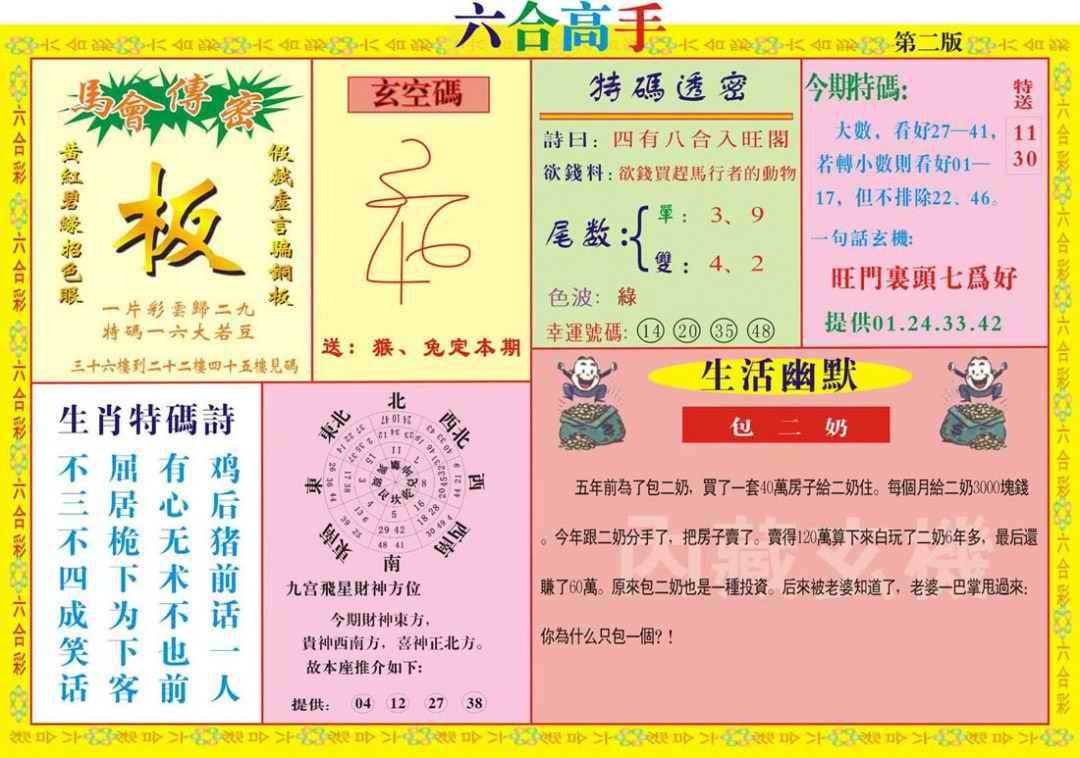 六合高手
第二版
馬會傳密
黃紅碧綠招色眼
板
假戲虛言騙銅板
一片彩雲歸二九
特碼一六大若豆
三十六樓到二十二樓四十五樓見碼
玄空碼
送：猴、兔定本期
特碼透密
詩曰：四有八合入旺閣
欲錢料：欲錢買趕馬行者的動物
尾数：
單：3、9
雙：4、2
色波：綠
幸運號碼：14 20 35 48
今期特碼：
特送
11
30
大數，看好27—41，
若轉小數則看好01—
17，但不排除22、46。
一句話玄機：
旺門裏頭七爲好
提供01.24.33.42
生肖特碼詩
鸡后猪前话一人
有心无术不也前
屈居桅下为下客
不三不四成笑话
北
東北
西北
東
西
東南
西南
南
九宫飛星財神方位
今期財神東方，
貴神西南方，喜神正北方。
故本座推介如下：
提供：04 12 27 38
生活幽默
包二奶
五年前為了包二奶，買了一套40萬房子給二奶住。每個月給二奶3000塊錢
。今年跟二奶分手了，把房子賣了。賣得120萬算下來白玩了二奶6年多，最后還
賺了60萬。原來包二奶也是一種投資。后來被老婆知道了，老婆一巴掌甩過來：
你為什么只包一個？！
内藏玄機
六合彩